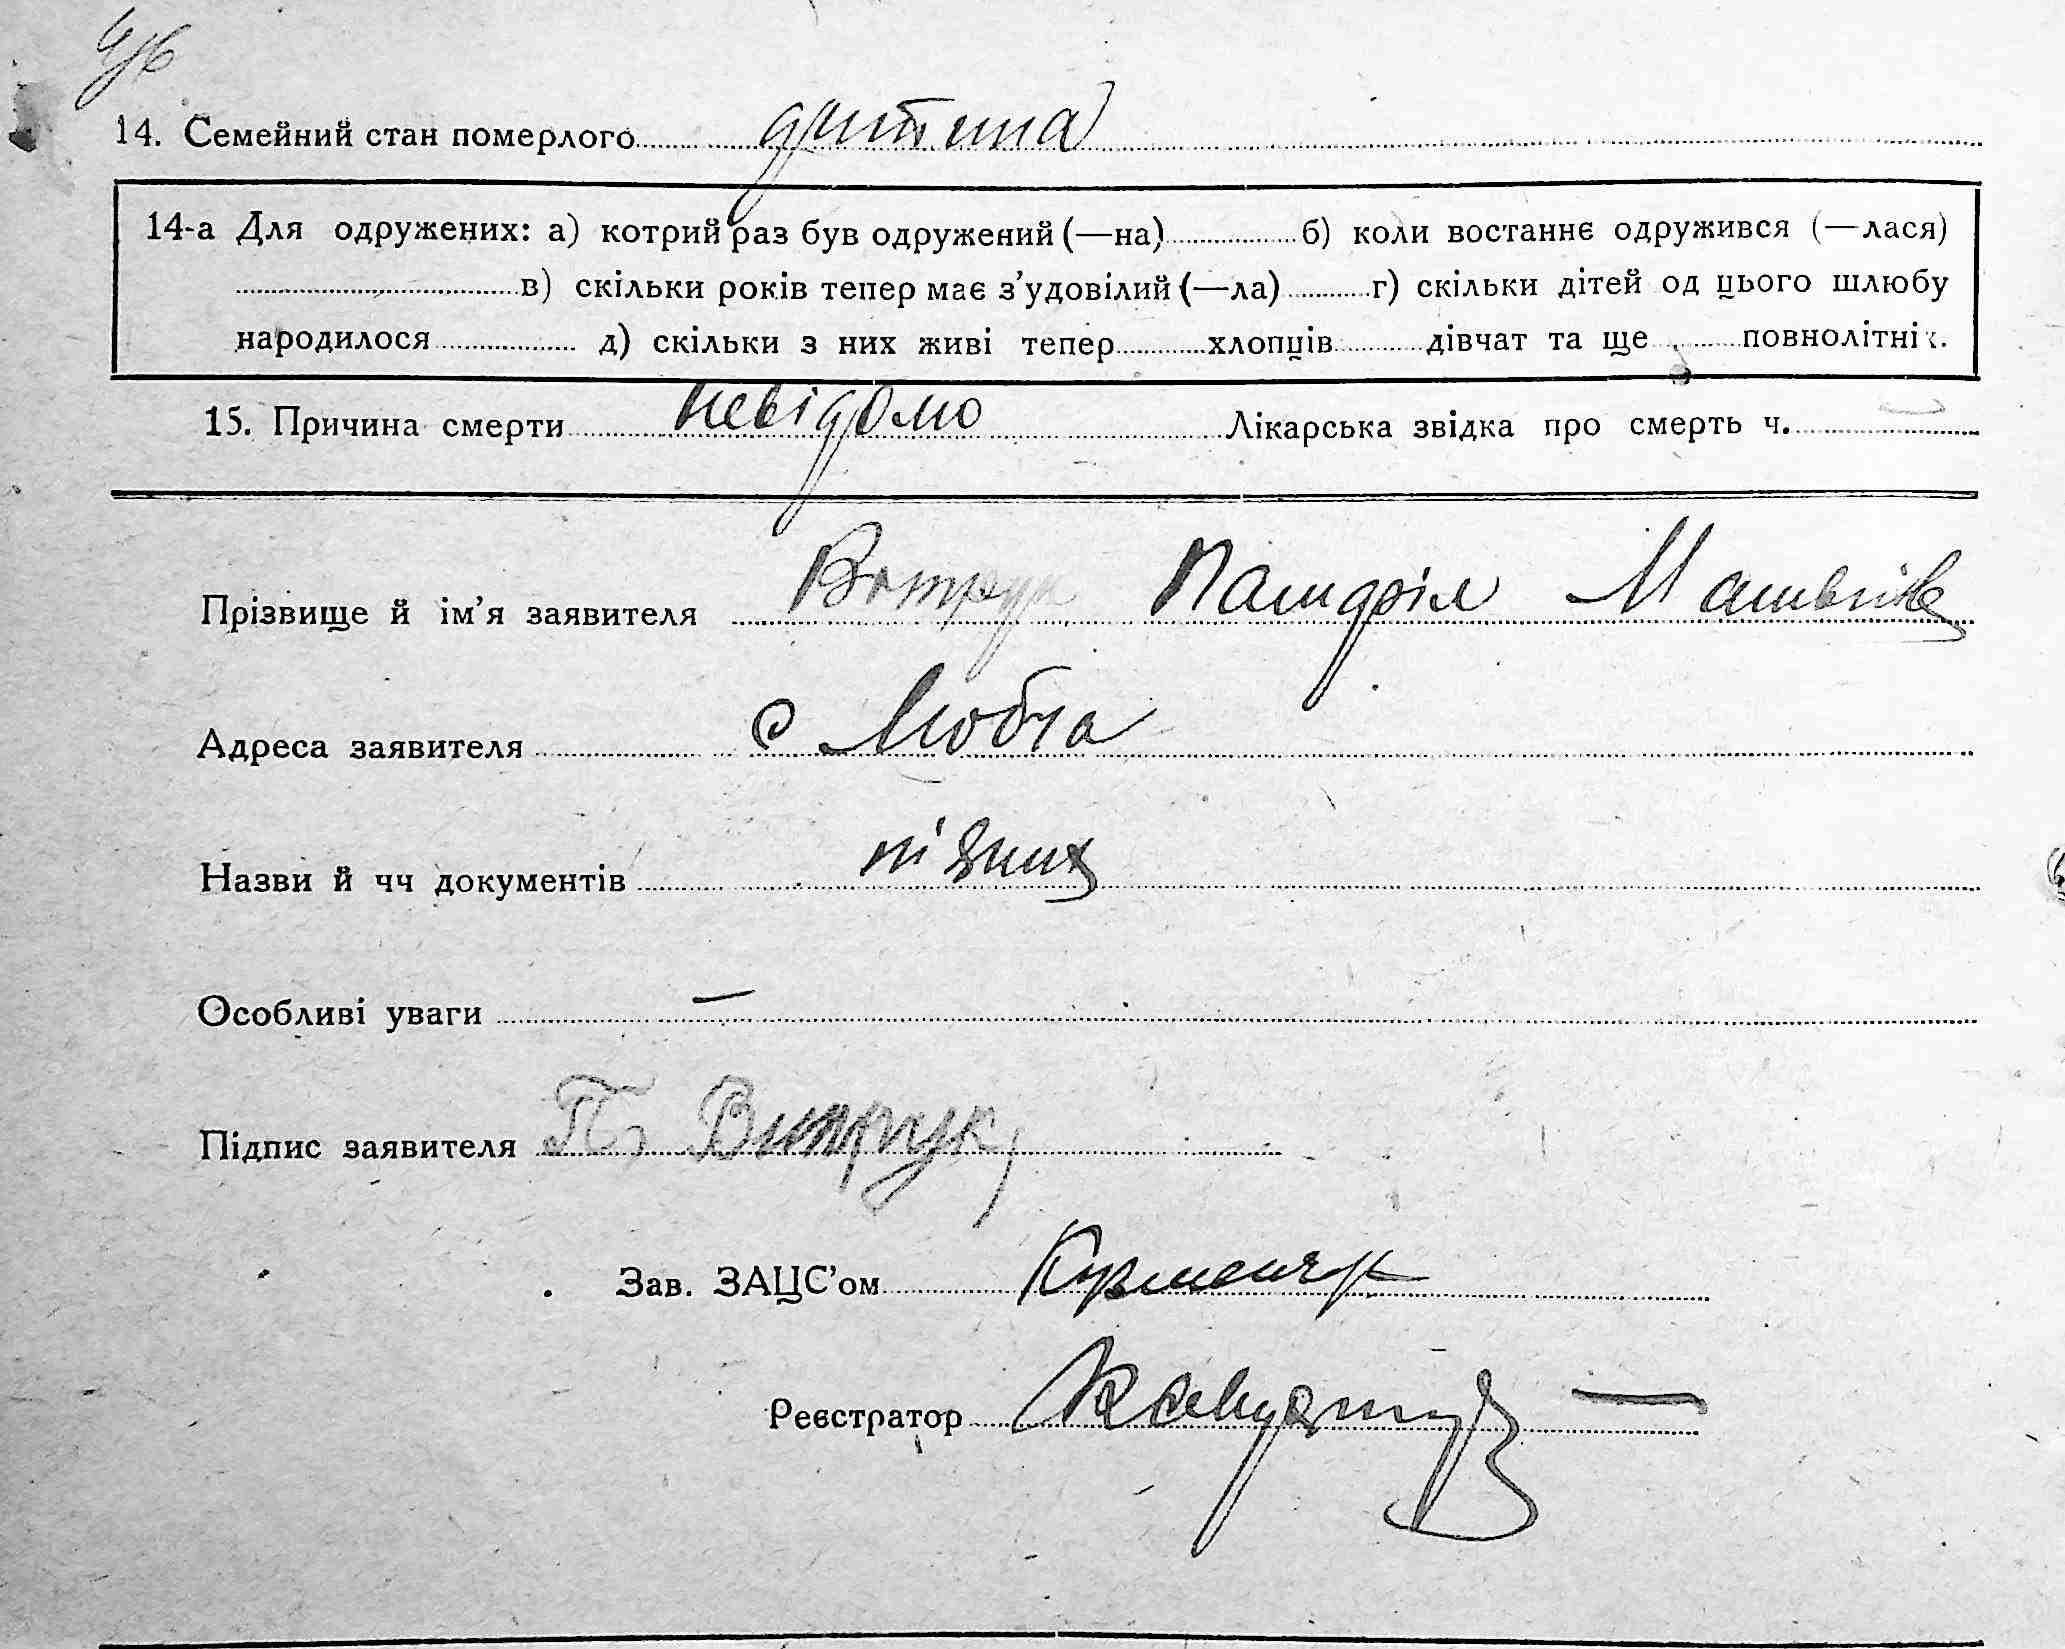 14. Семейний стан померлого дитина
14-а Для одружених: а) котрий раз був одружений (—на) б) коли востаннє одружився (—лася)
в) скільки років тепер має з'удовілий (—ла) г) скільки дітей од цього шлюбу
народилося д) скільки з них живі тепер хлопців дівчат та ще повнолітніх.
15. Причина смерти невідомо Лікарська звідка про смерть ч.
Прізвище й ім'я заявителя
Адреса заявителя с Любча
Назви й чч документів
Особливі уваги —
Підпис заявителя П.
Зав. ЗАЦС'ом
Реєстратор